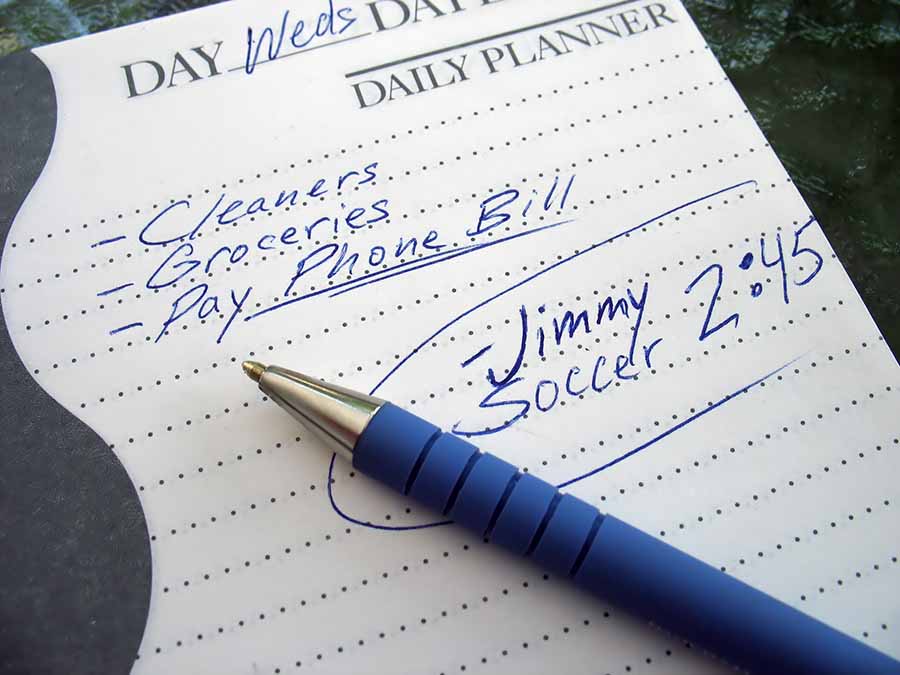 DAY Weds DATE
DAILY PLANNER
- Cleaners
- Groceries
- Pay Phone Bill
- Jimmy 2:45
Soccer